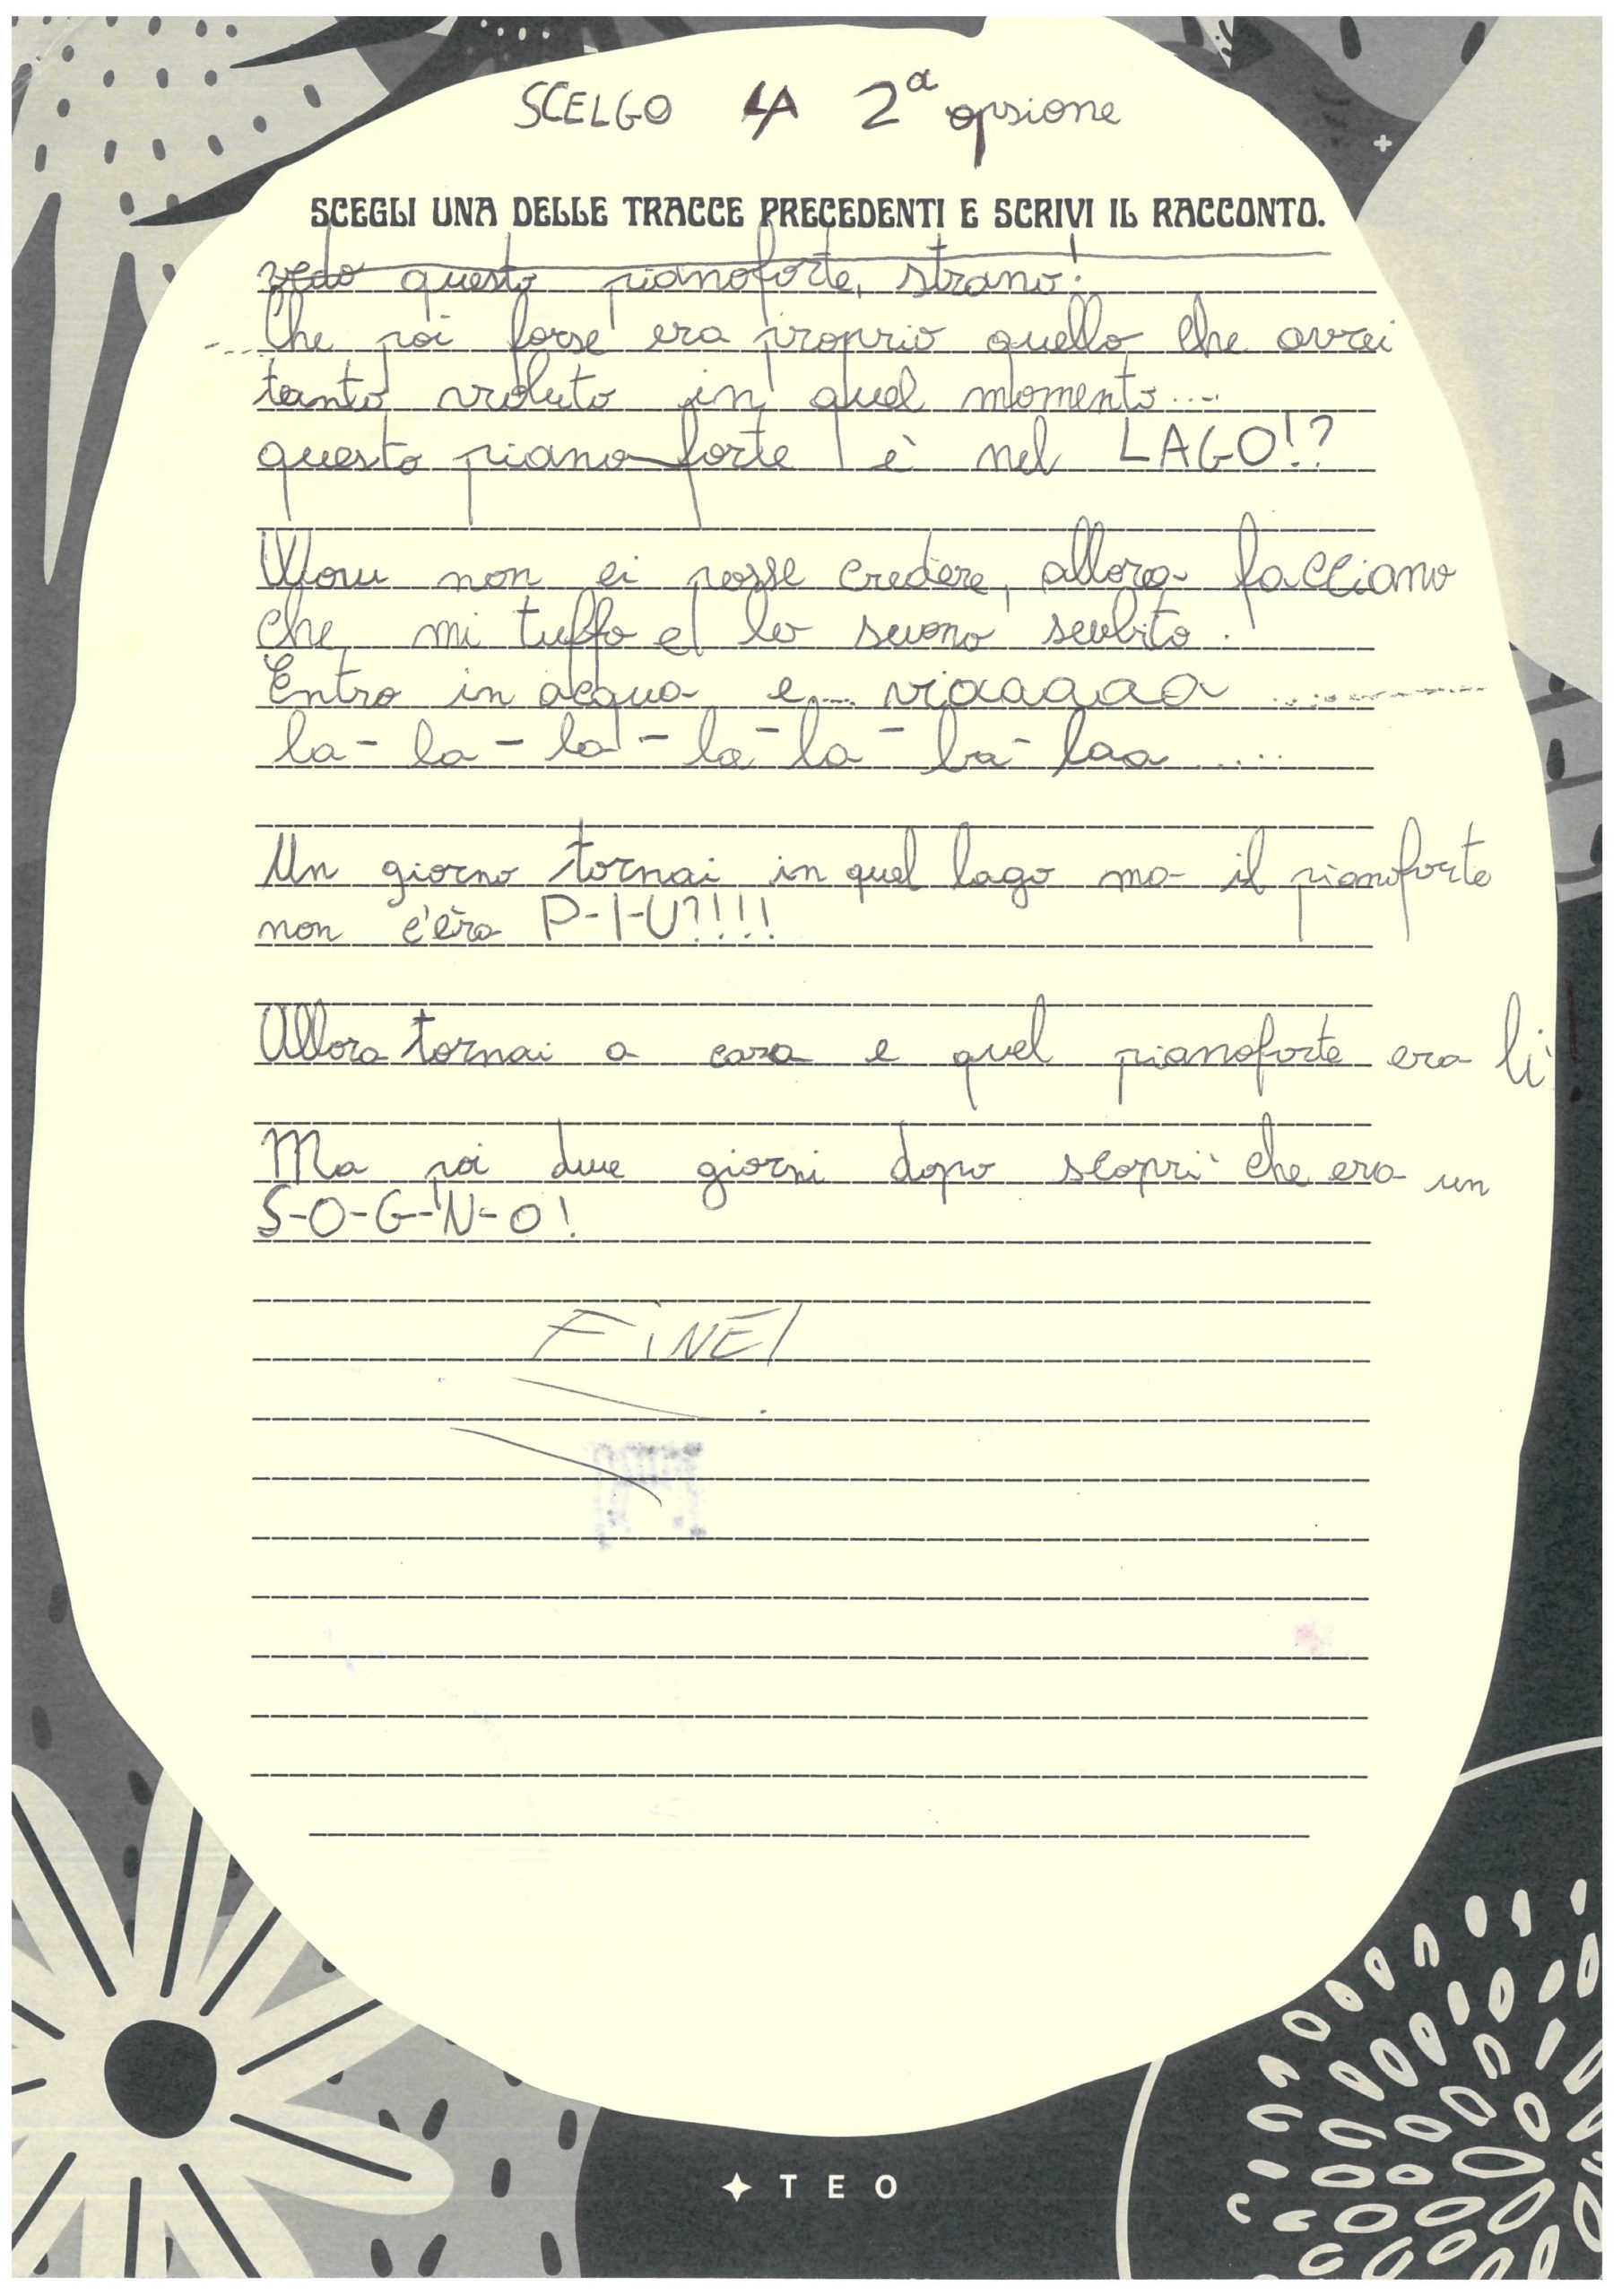 SCELGO LA 2ª opsione
SCEGLI UNA DELLE TRACCE PRECEDENTI E SCRIVI IL RACCONTO.
vedo questo pianoforte, strano!
Che poi forse era proprio quello che avrei
tanto voluto in quel momento....
questo piano forte è nel LAGO!?
Wow non ci posse credere, allora facciamo
che mi tuffo e lo suono subito.
Entro in acqua e... viaaaaaa ............
la - la - la - la - la - la - laa .....
Un giorno tornai in quel lago ma il pianoforte
non c'èra P-I-U?!!!!
Allora tornai a casa e quel pianoforte era lì
Ma poi due giorni dopo scoprì che era un
S-O-G-N-O!
FiNE!
TEO